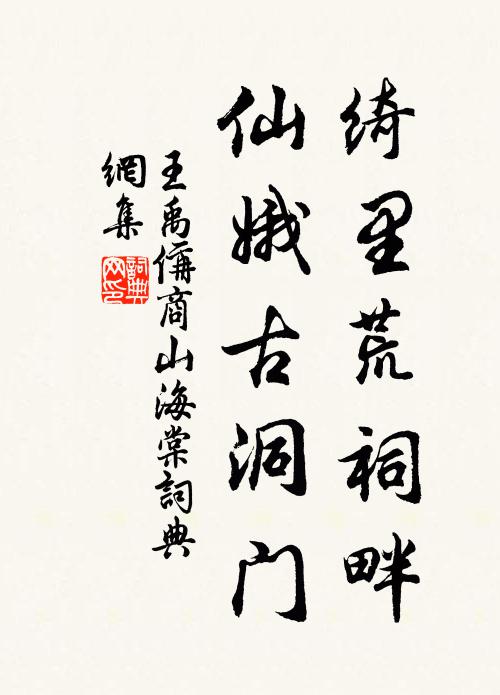 綺里荒祠畔
仙娥古洞门
王禹偁商山海棠詞典
網集
詞典
网印